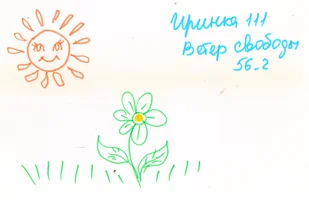 Иринка 111
Ветер Свободы
56-2